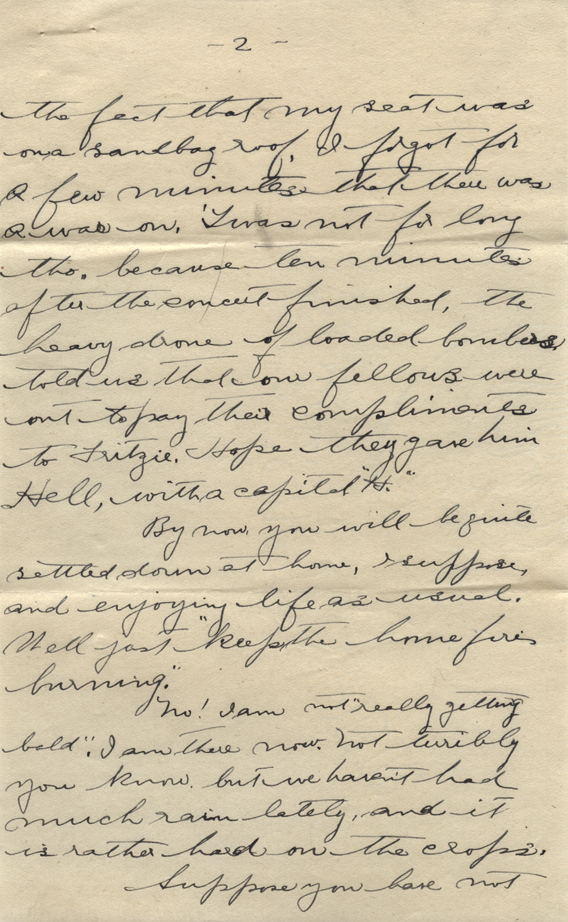 - 2 -
the fact that my seat was
on a sandbag roof, I forgot for
a few minutes that there was
a war on. 'Twas not for long
tho. because ten minutes
after the concert finished, the
heavy drone of loaded bombers,
told us that our fellows were
out to pay their compliments
to Fritzie. Hope they gave him
Hell, with a capital "H."
By now you will be quite
settled down at home, I suppose,
and enjoying life as usual.
Well just "keep the home fires
burning."
No! I am not "really getting
bald". I am there now. Not terribly
you know. but we haven't had
much rain lately, and it
is rather hard on the crops.
Suppose you have not